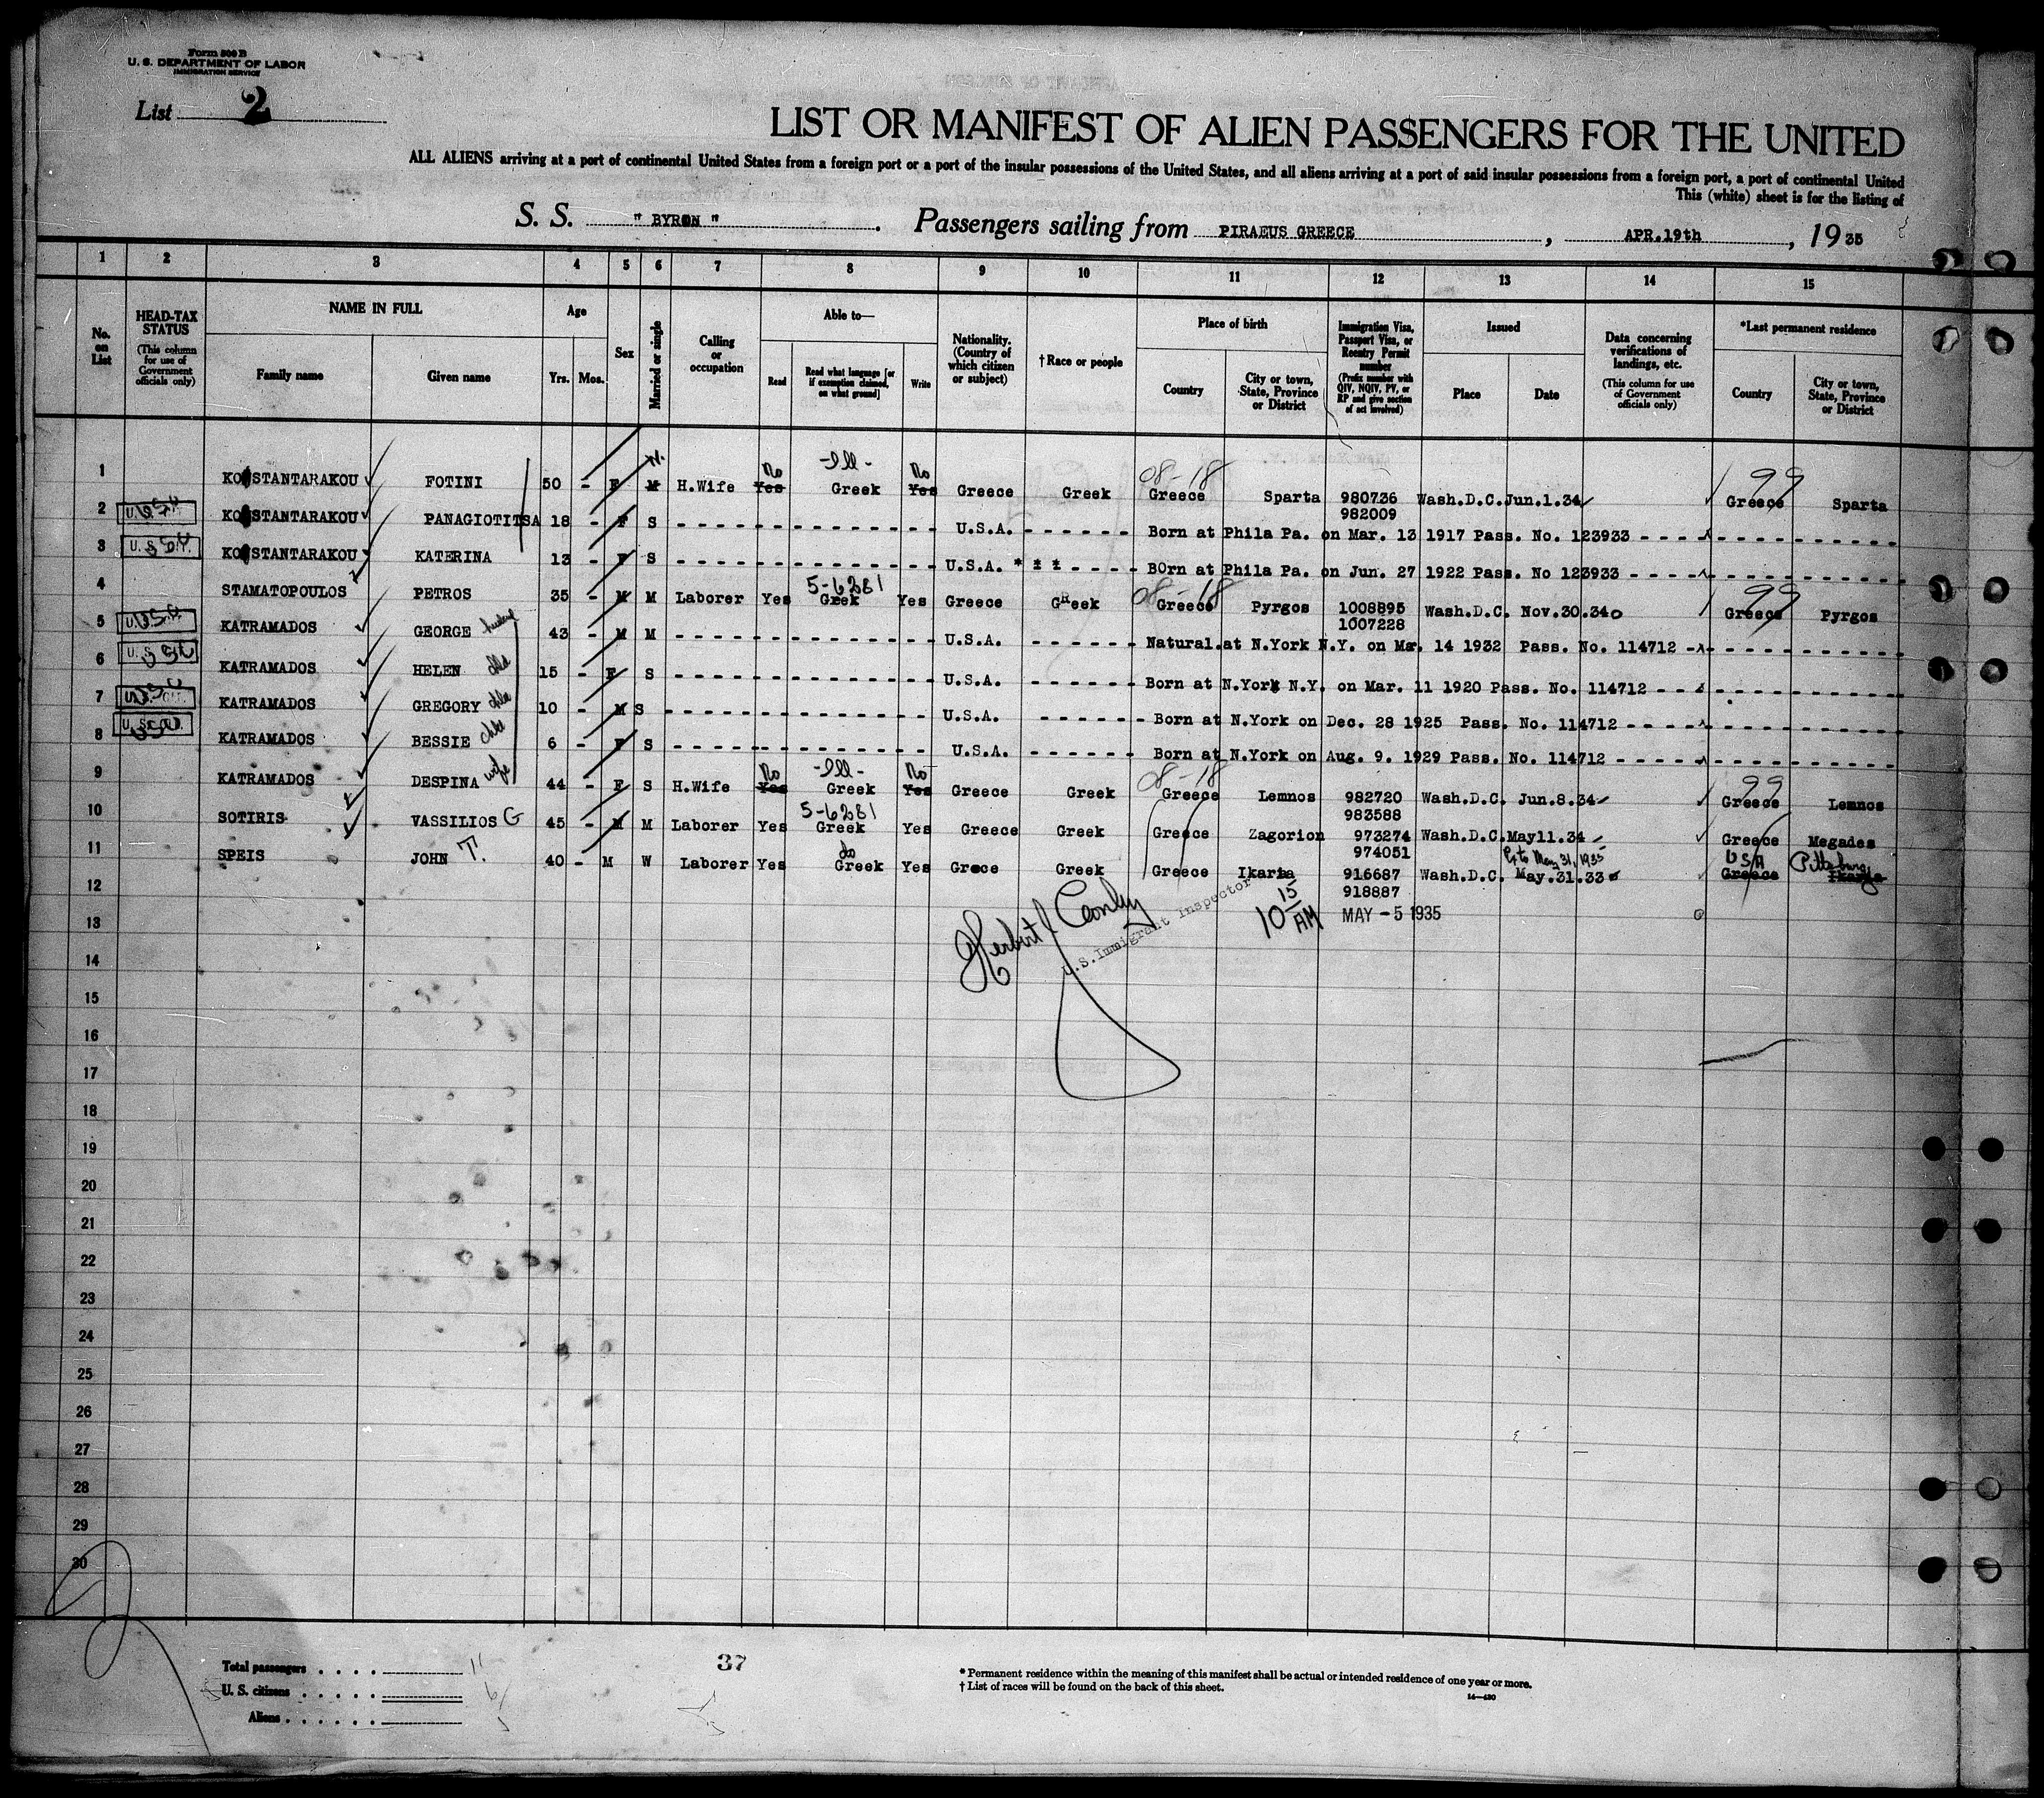 Form 500 B
U. S. DEPARTMENT OF LABOR
IMMIGRATION SERVICE
List 2
LIST OR MANIFEST OF ALIEN PASSENGERS FOR THE UNITED
ALL ALIENS arriving at a port of continental United States from a foreign port or a port of the insular possessions of the United States, and all aliens arriving at a port of said insular possessions from a foreign port, a port of continental United
This (white) sheet is for the listing of
S. S. " BYRON " . Passengers sailing from PIRAEUS GREECE , APR.19th , 1935
1 2 3 4 5 6 7 8 9 10 11 12 13 14 15
No. on List
HEAD-TAX STATUS (This column for use of Government officials only)
NAME IN FULL
Family name
Given name
Age
Yrs. Mos.
Sex
Married or single
Calling or occupation
Able to—
Read
Read what language [or if exemption claimed, on what ground]
Write
Nationality. (Country of which citizen or subject)
†Race or people
Place of birth
Country
City or town, State, Province or District
Immigration Visa, Passport Visa, or Reentry Permit number (Prefix number with QIV, NQIV, PV, or RP and give section of act involved)
Issued
Place
Date
Data concerning verifications of landings, etc. (This column for use of Government officials only)
*Last permanent residence
Country
City or town, State, Province or District
No -Ill- No 08-18 99
1 KONSTANTARAKOU FOTINI 50 - F M H.Wife Yes Greek Yes Greece Greek Greece Sparta 980736 Wash.D.C. Jun.1.34 Greece Sparta
982009
2 KONSTANTARAKOU PANAGIOTITSA 18 - F S U.S.A. Born at Phila Pa. on Mar. 13 1917 Pass. No. 123933
3 KONSTANTARAKOU KATERINA 13 - F S U.S.A. * * * BOrn at Phila Pa. on Jun. 27 1922 Pass. No 123933
5-6281 08-18 99
4 STAMATOPOULOS PETROS 35 - M M Laborer Yes Greek Yes Greece Greek Greece Pyrgos 1008895 Wash.D.C. Nov.30.34 Greece Pyrgos
1007228
5 KATRAMADOS GEORGE 43 - M M U.S.A. Natural.at N.York N.Y. on Mar. 14 1932 Pass. No. 114712
6 KATRAMADOS HELEN 15 - F S U.S.A. Born at N.York N.Y. on Mar. 11 1920 Pass. No. 114712
7 KATRAMADOS GREGORY 10 - M S U.S.A. Born at N.York on Dec. 28 1925 Pass. No. 114712
8 KATRAMADOS BESSIE child 6 - F S U.S.A. Born at N.York on Aug. 9. 1929 Pass. No. 114712
No -Ill- No 08-18 99
9 KATRAMADOS DESPINA wife 44 - F S H.Wife Yes Greek Yes Greece Greek Greece Lemnos 982720 Wash.D.C. Jun.8.34 Greece Lemnos
5-6281 983588
10 SOTIRIS VASSILIOS G 45 - M M Laborer Yes Greek Yes Greece Greek Greece Zagorion 973274 Wash.D.C. May11.34 Greece Megades
do 974051 May 31, 1935 USA Pittsburg
11 SPEIS JOHN T. 40 - M W Laborer Yes Greek Yes Grece Greek Greece Ikaria 916687 Wash.D.C. May.31.33 Greece Ikaria
12 918887
Herbert J Conley
U.S.Immigrant Inspector
10 15 AM MAY - 5 1935
13
14
15
16
17
18
19
20
21
22
23
24
25
26
27
28
29
30
Total passengers 11
U. S. citizens 6
Aliens 5
37
* Permanent residence within the meaning of this manifest shall be actual or intended residence of one year or more.
† List of races will be found on the back of this sheet.
14—430